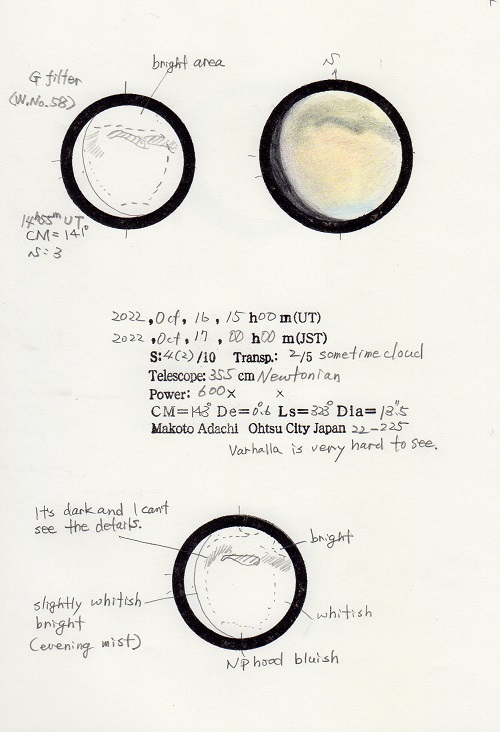 bright area
S
G filter
(W.No.58)
14h55m UT
CM=141°
S=3
2022,Oct,16,15 h00 m(UT)
2022,Oct,17,00 h00 m(JST)
S:4(2)/10 Transp.: 2/5 sometime cloud
Telescope: 355 cm Newtonian
Power: 600× ×
CM=143° De=0.°6 Ls=323° Dia=13."5
Makoto Adachi Ohtsu City Japan 22-225
Varhalla is very hard to see.
It's dark and I can't
see the details.
bright
slightly whitish
bright
(evening mist)
whitish
Np hood bluish